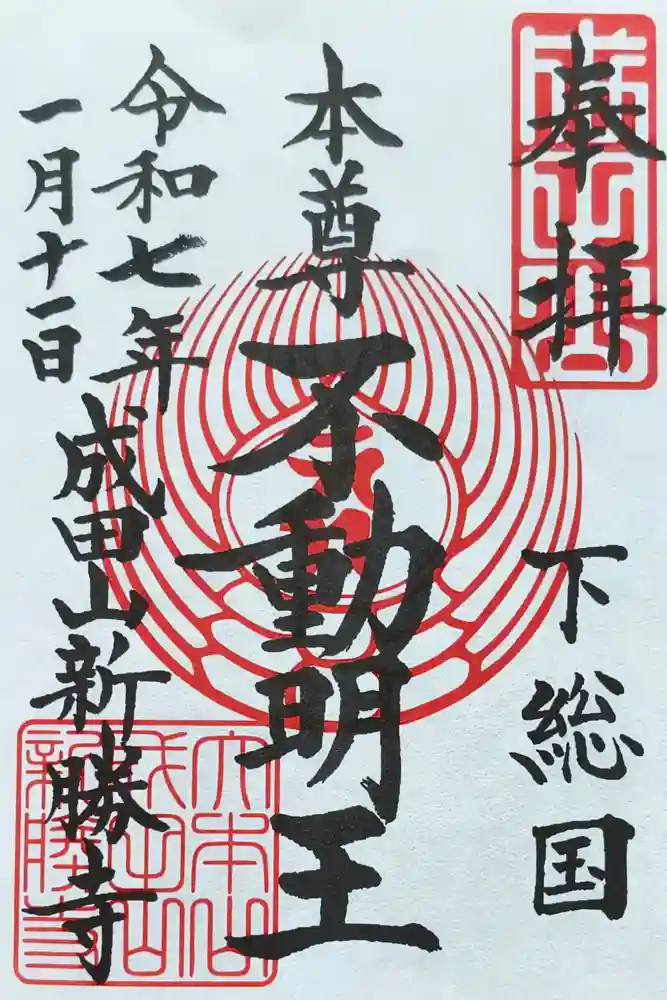 奉拝
下総国
本尊不動明王
令和七年
一月十一日
成田山新勝寺
成田山
大本山
成田山
新勝寺